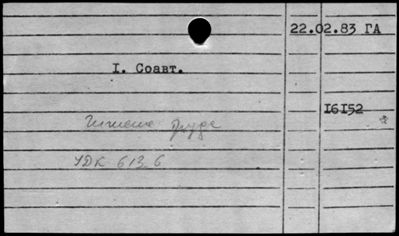 22.02.83 ГА
I. Соавт.
16152
Гигиена труда
УДК 613.6